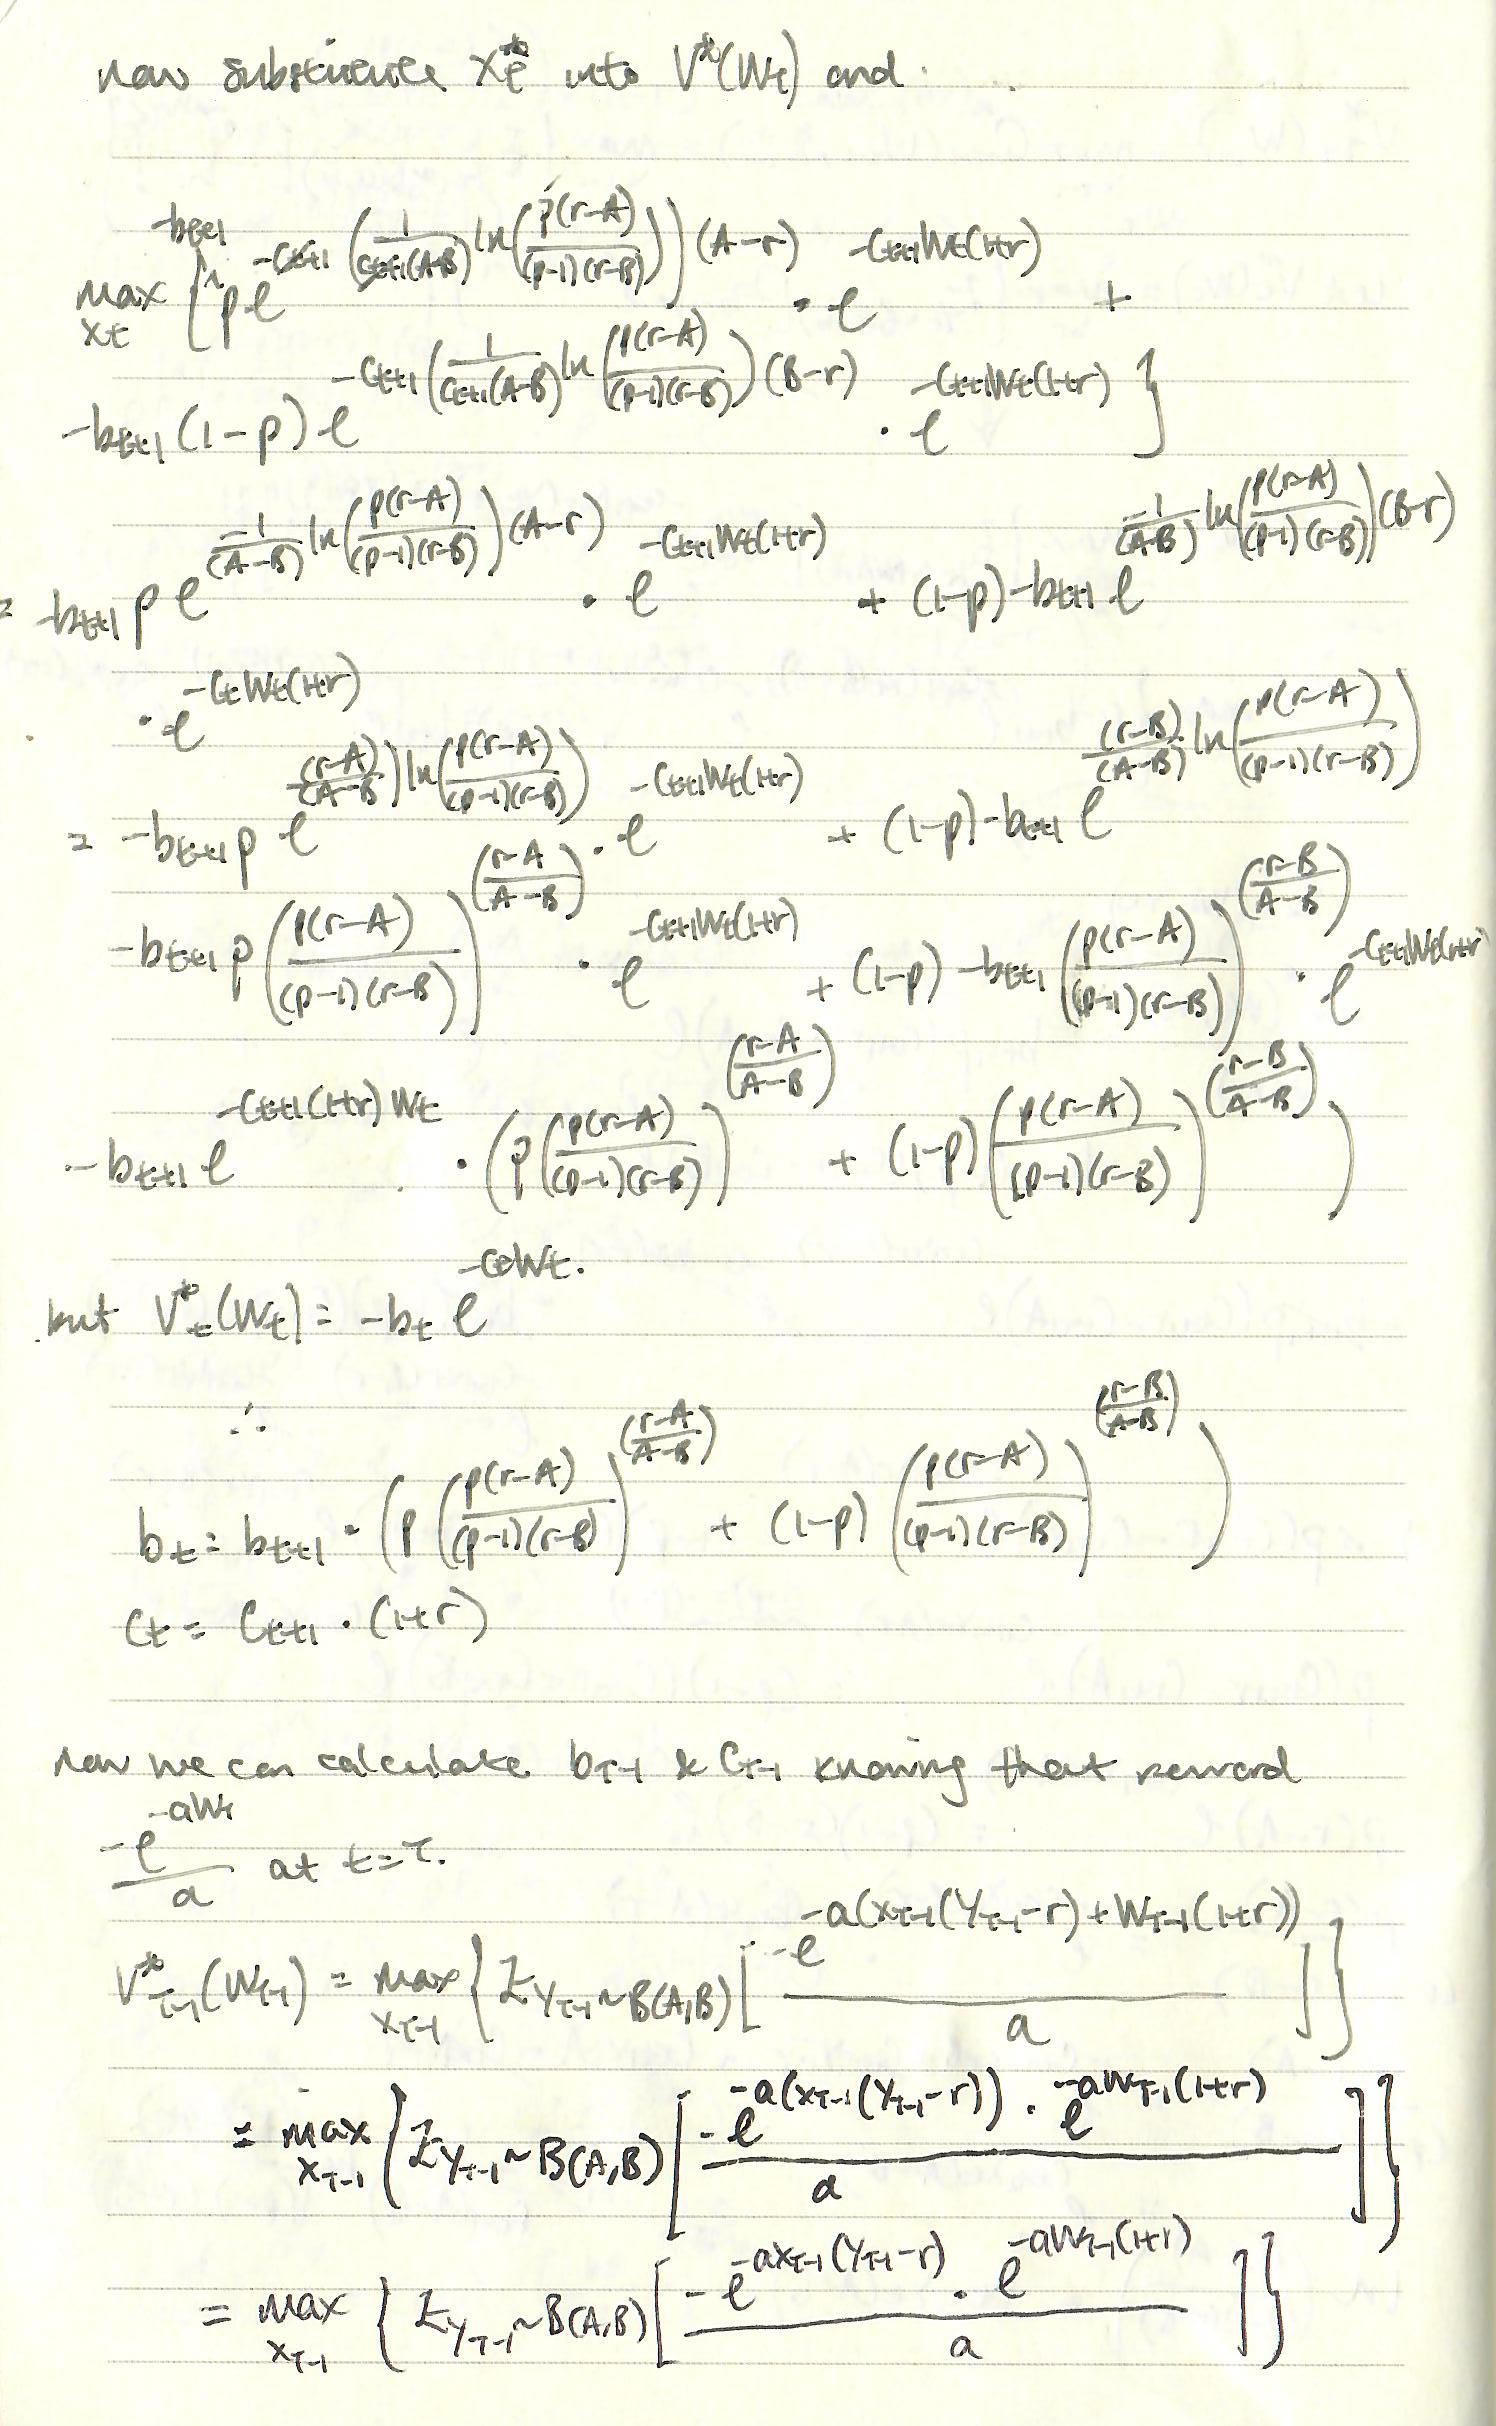 now substitute X*_t into V*(W_t) and
max_{x_t} [ -b_{t+1} p e^{-C_{t+1} (\frac{1}{C_{t+1}(A-B)} ln(\frac{p(r-A)}{(p-1)(r-B)})) (A-r)} · e^{-C_{t+1}W_t(1+r)} +
-b_{t+1} (1-p) e^{-C_{t+1} (\frac{1}{C_{t+1}(A-B)} ln(\frac{p(r-A)}{(p-1)(r-B)}) (B-r)} · e^{-C_{t+1}W_t(1+r)} }
= -b_{t+1} p e^{\frac{-1}{(A-B)} ln(\frac{p(r-A)}{(p-1)(r-B)}) (A-r)} · e^{-C_{t+1}W_t(1+r)} + (1-p) -b_{t+1} e^{\frac{-1}{(A-B)} ln(\frac{p(r-A)}{(p-1)(r-B)}) (B-r)}
· e^{-C_tW_t(1+r)}
= -b_{t+1} p e^{\frac{(r-A)}{(A-B)} ln(\frac{p(r-A)}{(p-1)(r-B)})} · e^{-C_{t+1}W_t(1+r)} + (1-p) -b_{t+1} e^{\frac{(r-B)}{(A-B)} ln(\frac{p(r-A)}{(p-1)(r-B)})}
-b_{t+1} p (\frac{p(r-A)}{(p-1)(r-B)})^{(\frac{r-A}{A-B})} · e^{-C_{t+1}W_t(1+r)} + (1-p) -b_{t+1} (\frac{p(r-A)}{(p-1)(r-B)})^{(\frac{r-B}{A-B})} · e^{-C_{t+1}W_t(1+r)}
-b_{t+1} e^{-C_{t+1}(1+r)W_t} · (p (\frac{p(r-A)}{(p-1)(r-B)})^{(\frac{r-A}{A-B})} + (1-p) (\frac{p(r-A)}{(p-1)(r-B)})^{(\frac{r-B}{A-B})})
but V*_t(W_t) = -b_t e^{-C_tW_t}.
∴
b_t = b_{t+1} · (p (\frac{p(r-A)}{(p-1)(r-B)})^{(\frac{r-A}{A-B})} + (1-p) (\frac{p(r-A)}{(p-1)(r-B)})^{(\frac{r-B}{A-B})})
C_t = C_{t+1} · (1+r)
now we can calculate b_{T-1} & C_{T-1} knowing that reward
\frac{-e^{-aW_T}}{a} at t=T.
V*_{T-1}(W_{T-1}) = max_{x_{T-1}} { E_{Y_{T-1}~B(A,B)} [ \frac{-e^{-a(x_{T-1}(Y_{T-1}-r)+W_{T-1}(1+r))}}{a} ] }
= max_{x_{T-1}} { E_{Y_{T-1}~B(A,B)} [ \frac{-e^{-a(x_{T-1}(Y_{T-1}-r))} · e^{-aW_{T-1}(1+r)}}{a} ] }
= max_{x_{T-1}} { E_{Y_{T-1}~B(A,B)} [ \frac{-e^{-ax_{T-1}(Y_{T-1}-r)} · e^{-aW_{T-1}(1+r)}}{a} ] }